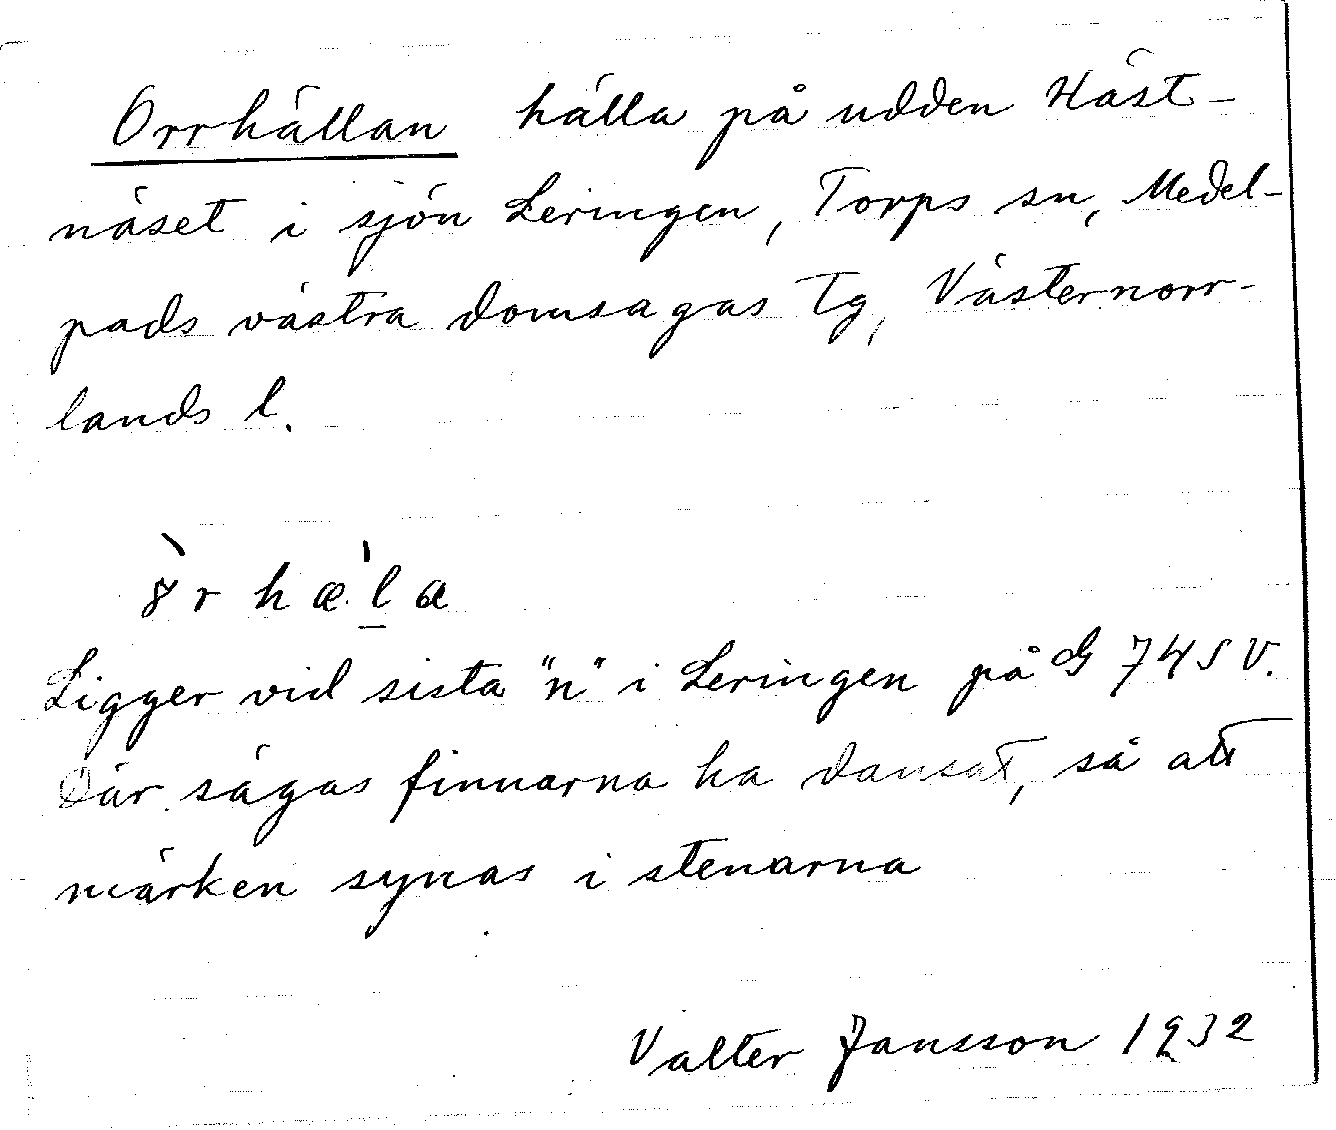 Orrhällan hälla på udden Häst-
näset i sjön Leringen, Torps sn, Medel-
pads västra domsagas tg, Västernorr-
lands l.
Ligger vid sista "n" i Leringen på G 74 S V.
Där sägas finnarna ha dansat, så att
märken synas i stenarna
Valter Jansson 1932